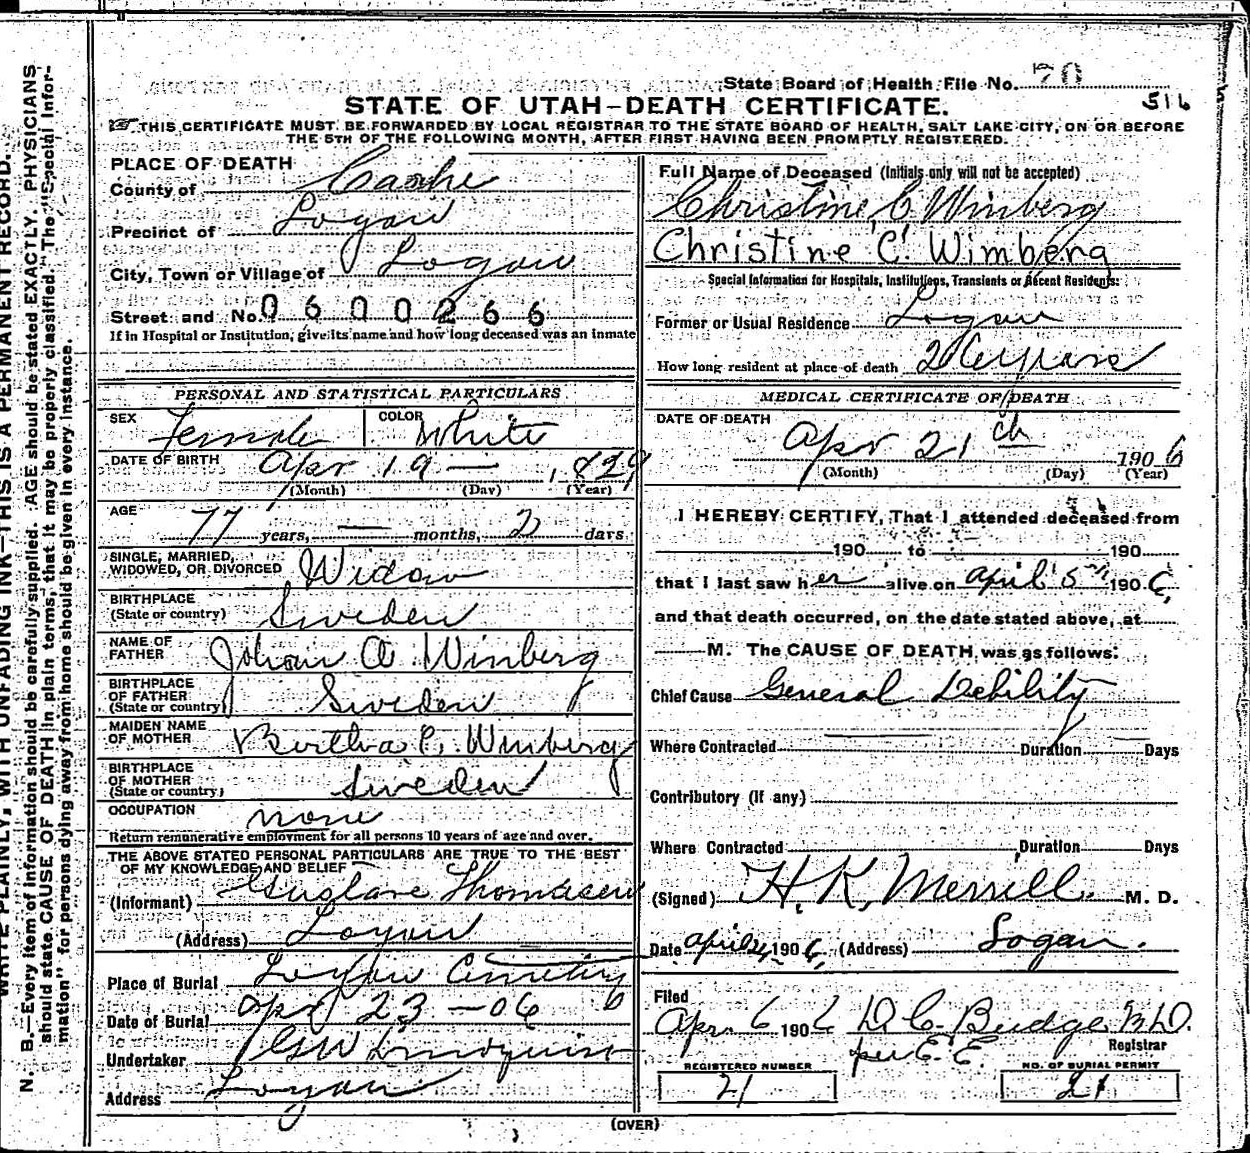 State Board of Health File No. 70
516
STATE OF UTAH—DEATH CERTIFICATE.
THIS CERTIFICATE MUST BE FORWARDED BY LOCAL REGISTRAR TO THE STATE BOARD OF HEALTH, SALT LAKE CITY, ON OR BEFORE
THE 5TH OF THE FOLLOWING MONTH, AFTER FIRST HAVING BEEN PROMPTLY REGISTERED.
PLACE OF DEATH
County of Cache
Precinct of Logan
City, Town or Village of Logan
Street and No. 0600266
If in Hospital or Institution, give its name and how long deceased was an inmate
PERSONAL AND STATISTICAL PARTICULARS
SEX Female COLOR White
DATE OF BIRTH Apr 19 — , 1829
(Month) (Day) (Year)
AGE
77 years, — months, 2 days
SINGLE, MARRIED,
WIDOWED, OR DIVORCED Widow
BIRTHPLACE
(State or country) Sweden
NAME OF
FATHER Johan A. Winberg
BIRTHPLACE
OF FATHER
(State or country) Sweden
MAIDEN NAME
OF MOTHER Bertha C. Winberg
BIRTHPLACE
OF MOTHER
(State or country) Sweden
OCCUPATION none
Return remunerative employment for all persons 10 years of age and over.
THE ABOVE STATED PERSONAL PARTICULARS ARE TRUE TO THE BEST
OF MY KNOWLEDGE AND BELIEF
(Informant) Gustave Thomasen
(Address) Logan
Place of Burial Logan Cemetery
Date of Burial Apr 23 — 06
Undertaker Lindquist
Address Logan
Full Name of Deceased (Initials only will not be accepted)
Christine C. Winberg
Christine 'C'. Wimberg
Special Information for Hospitals, Institutions, Transients or Recent Residents:
Former or Usual Residence Logan
How long resident at place of death years
MEDICAL CERTIFICATE OF DEATH
DATE OF DEATH
Apr 21 1906
(Month) (Day) (Year)
I HEREBY CERTIFY, That I attended deceased from
190 to 190
that I last saw her alive on April 5th 1906,
and that death occurred, on the date stated above, at
— M. The CAUSE OF DEATH was as follows:
Chief Cause General Debility
Where Contracted Duration Days
Contributory (If any)
Where Contracted Duration Days
(Signed) H. K. Merrill. M. D.
Date April 1906, (Address) Logan.
Filed
Apr. 190 D C Budge M D.
per E. E. Registrar
REGISTERED NUMBER
21
NO. OF BURIAL PERMIT
21
(OVER)
WRITE PLAINLY, WITH UNFADING INK—THIS IS A PERMANENT RECORD.
N. B.—Every item of information should be carefully supplied. AGE should be stated EXACTLY. PHYSICIANS
should state CAUSE OF DEATH in plain terms, that it may be properly classified. The "Special Infor-
mation" for persons dying away from home should be given in every instance.